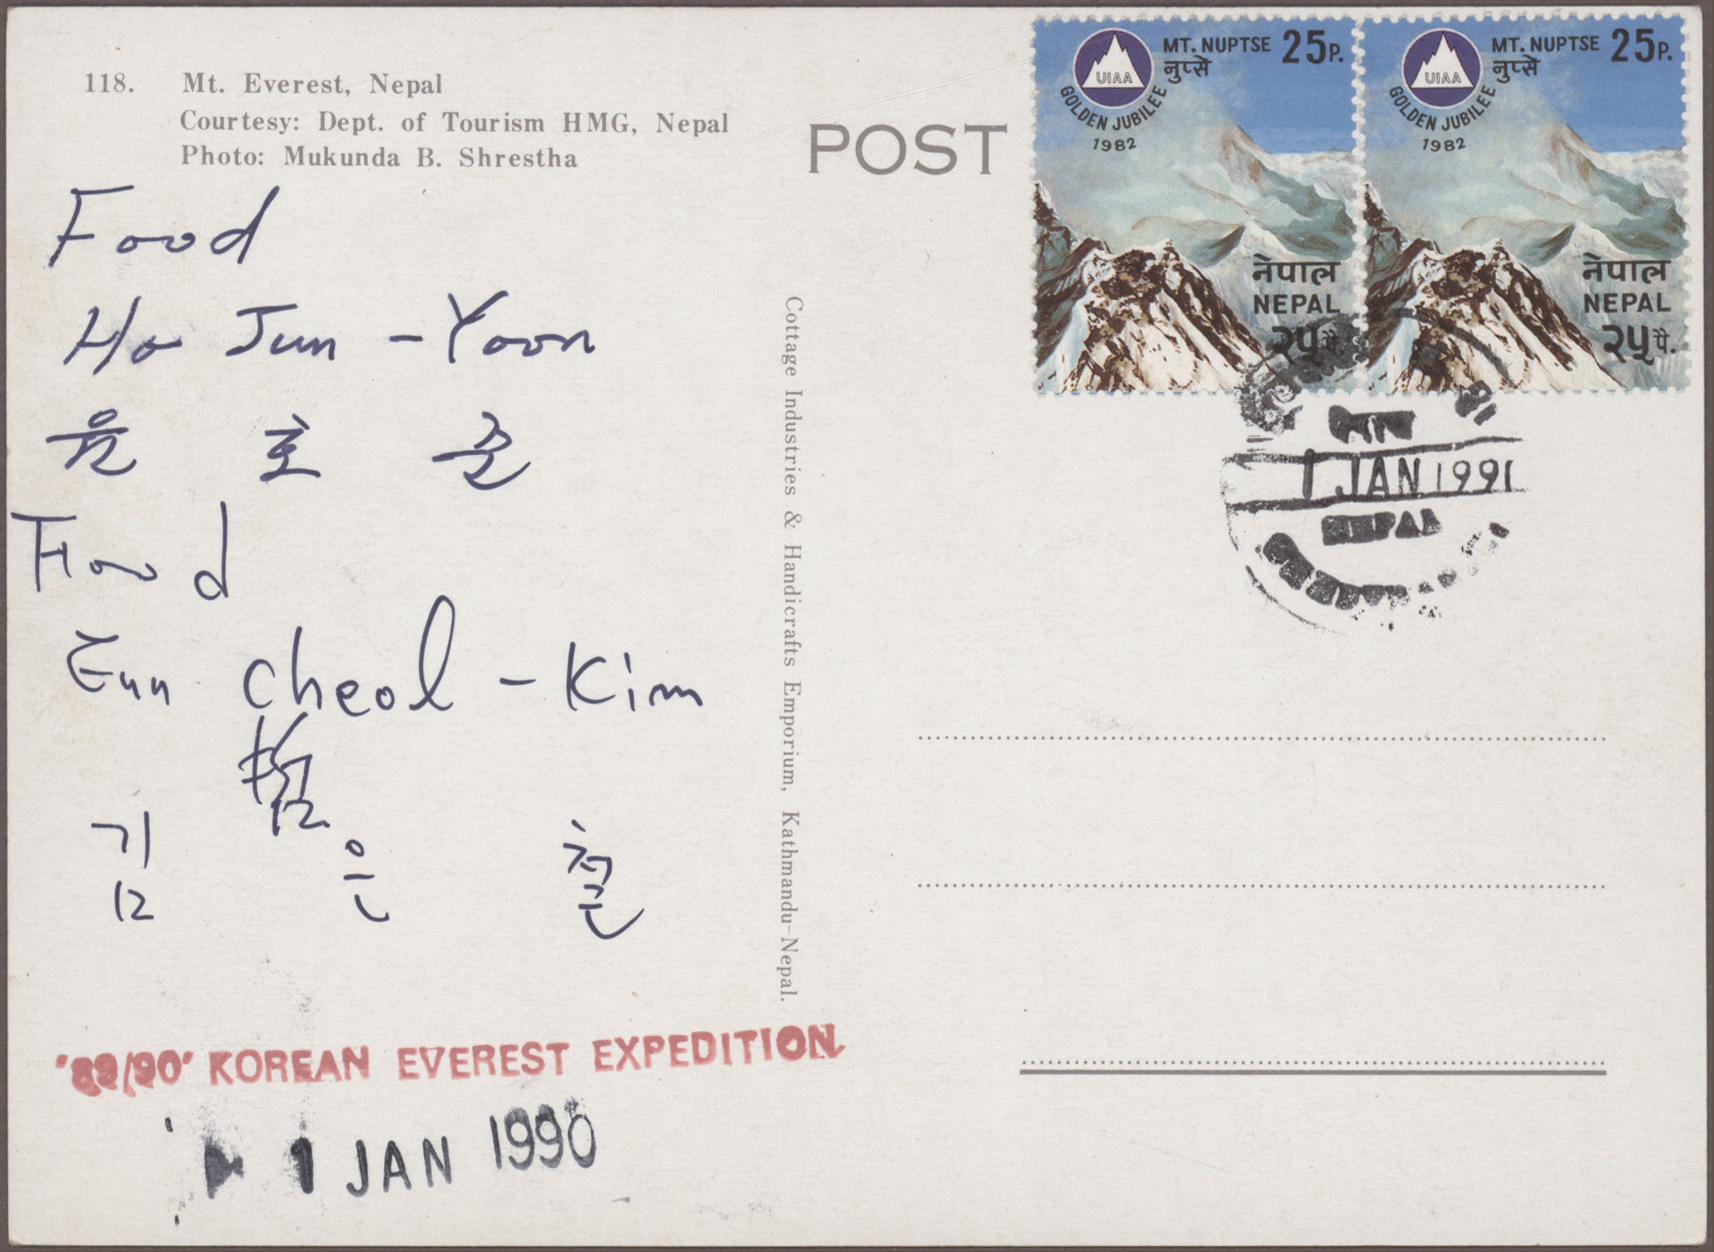 118. Mt. Everest, Nepal
Courtesy: Dept. of Tourism HMG, Nepal
Photo: Mukunda B. Shrestha
Food
Ho Jun - Yoon
윤 호 준
Food
Eun cheol - Kim
김 은 철
'89/90' KOREAN EVEREST EXPEDITION
1 JAN 1990
Cottage Industries & Handicrafts Emporium, Kathmandu-Nepal.
POST
UIAA
GOLDEN JUBILEE
1982
MT. NUPTSE 25P.
नुप्से
नेपाल
NEPAL
२५ पै.
UIAA
GOLDEN JUBILEE
1982
MT. NUPTSE 25P.
नुप्से
नेपाल
NEPAL
२५ पै.
1 JAN 1991
NEPAL